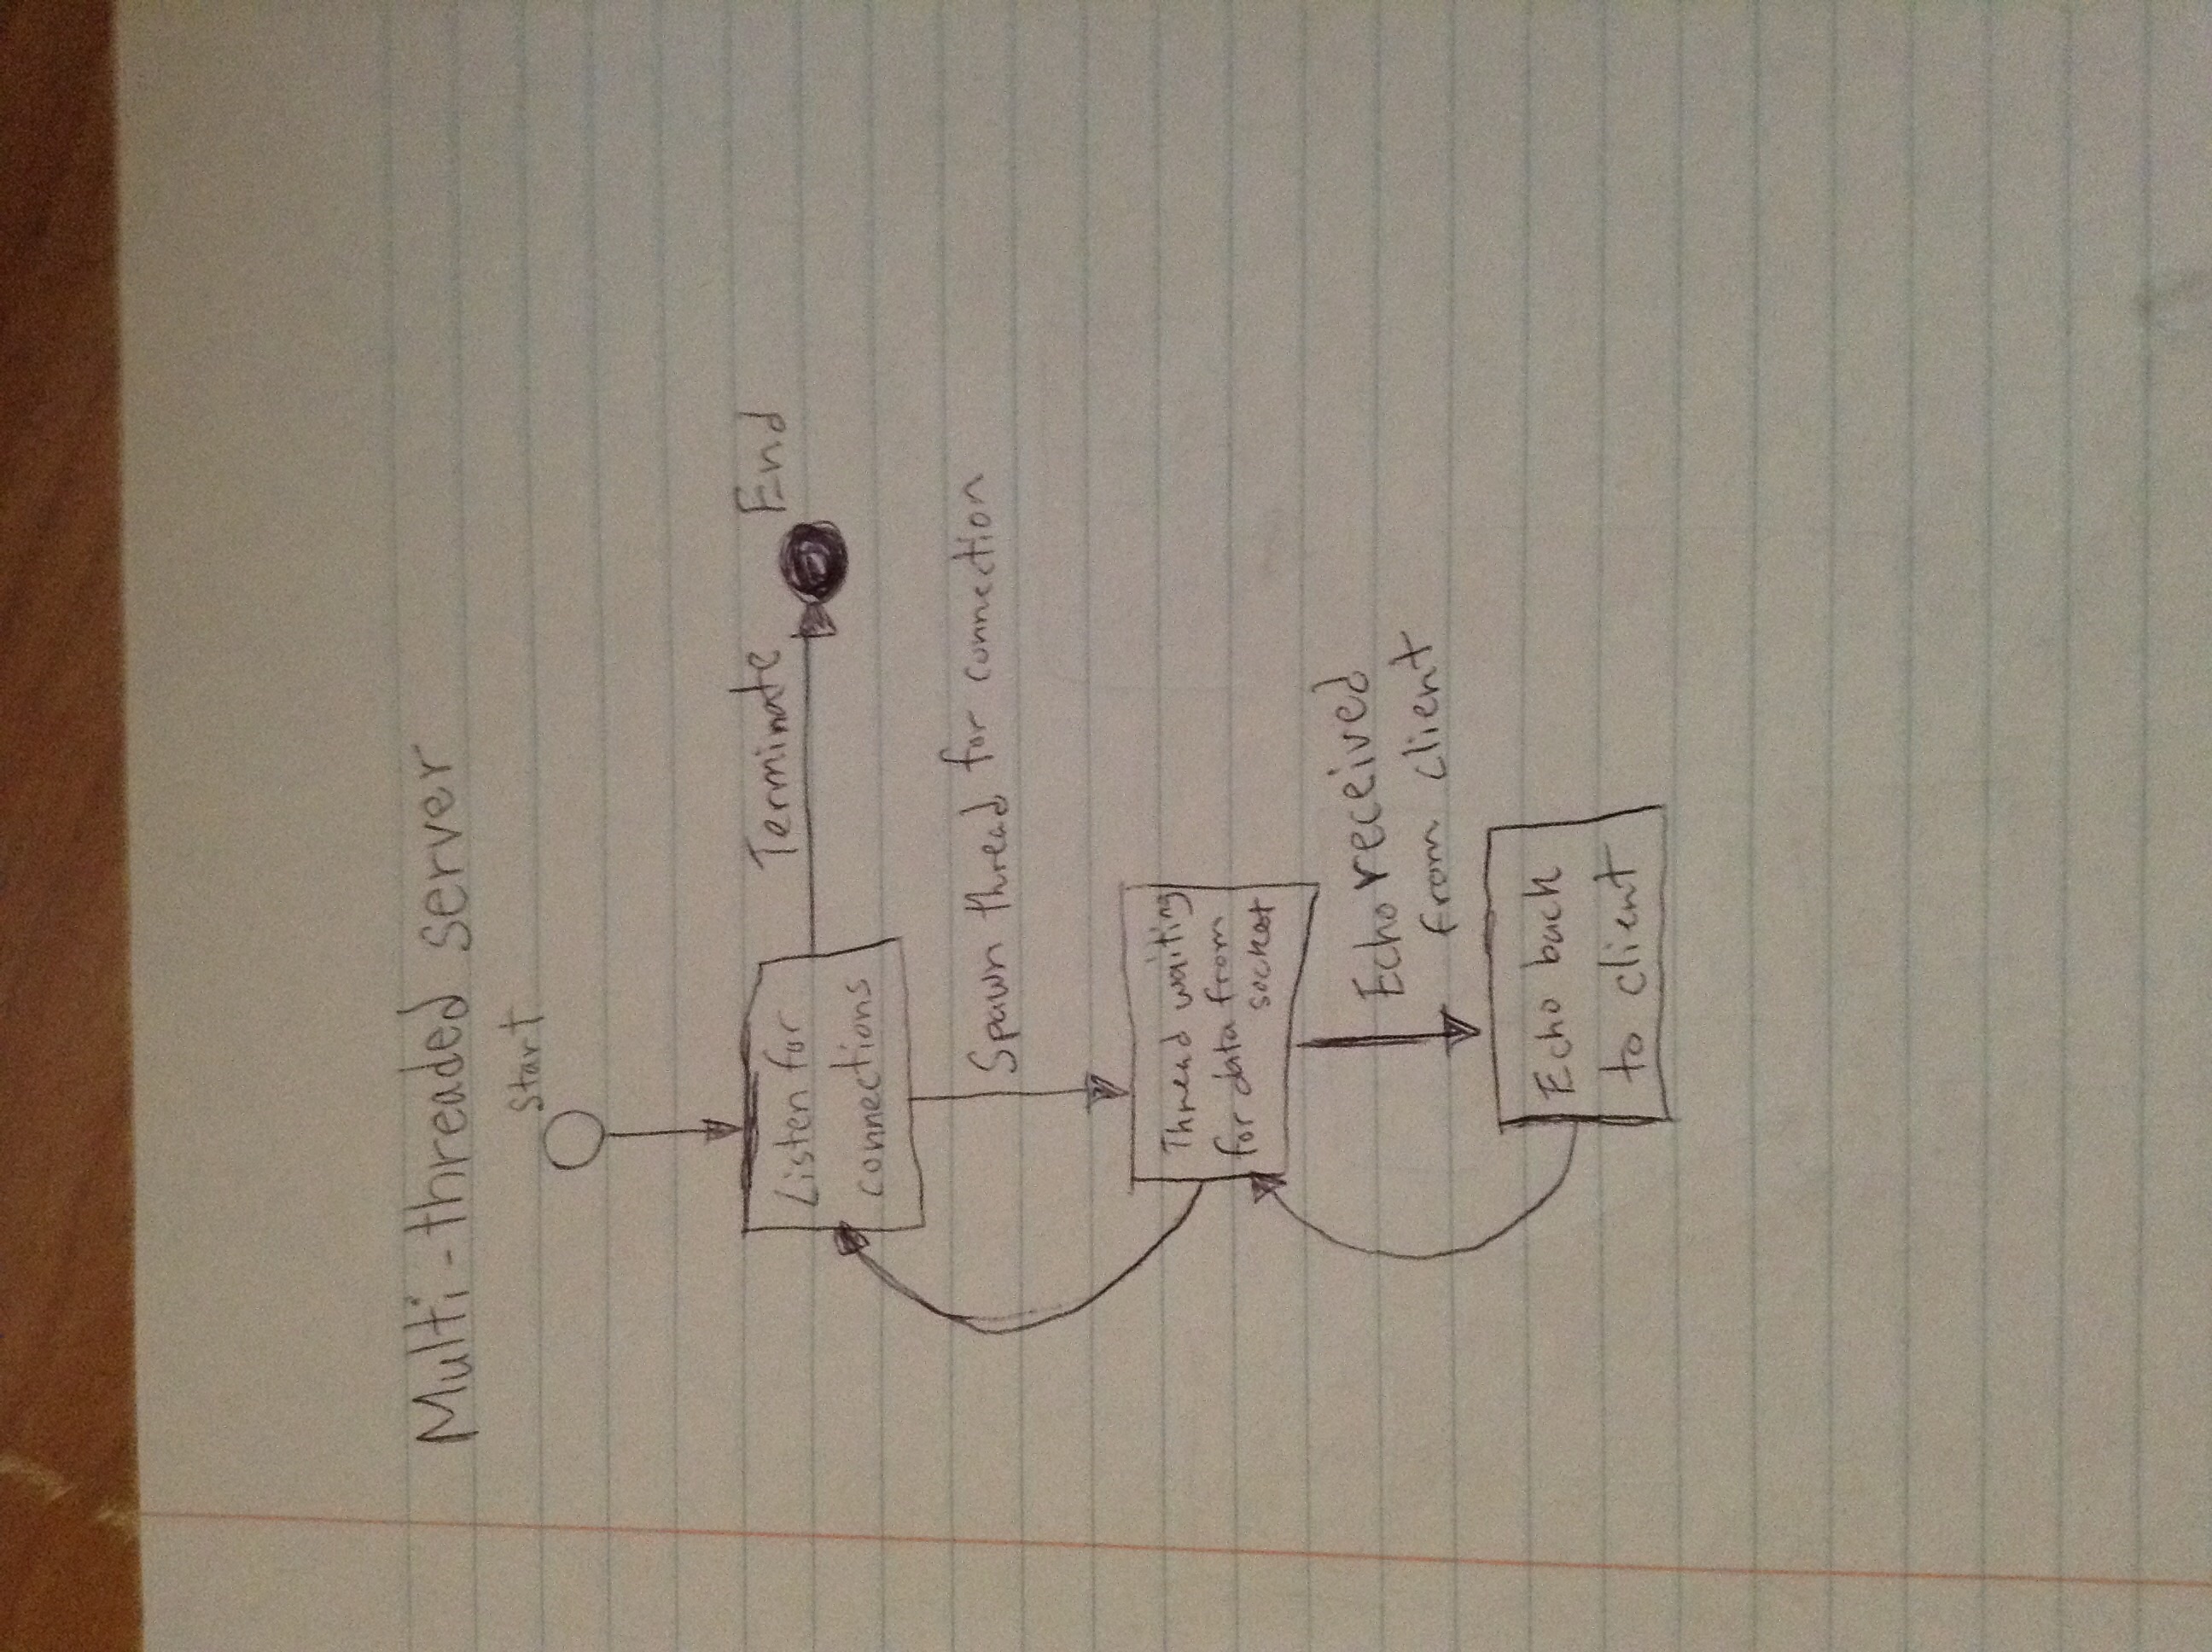 Multi-threaded server
Start
Listen for
connections
Terminate
End
Spawn thread for connection
Thread waiting
for data from
socket
Echo received
from client
Echo back
to client